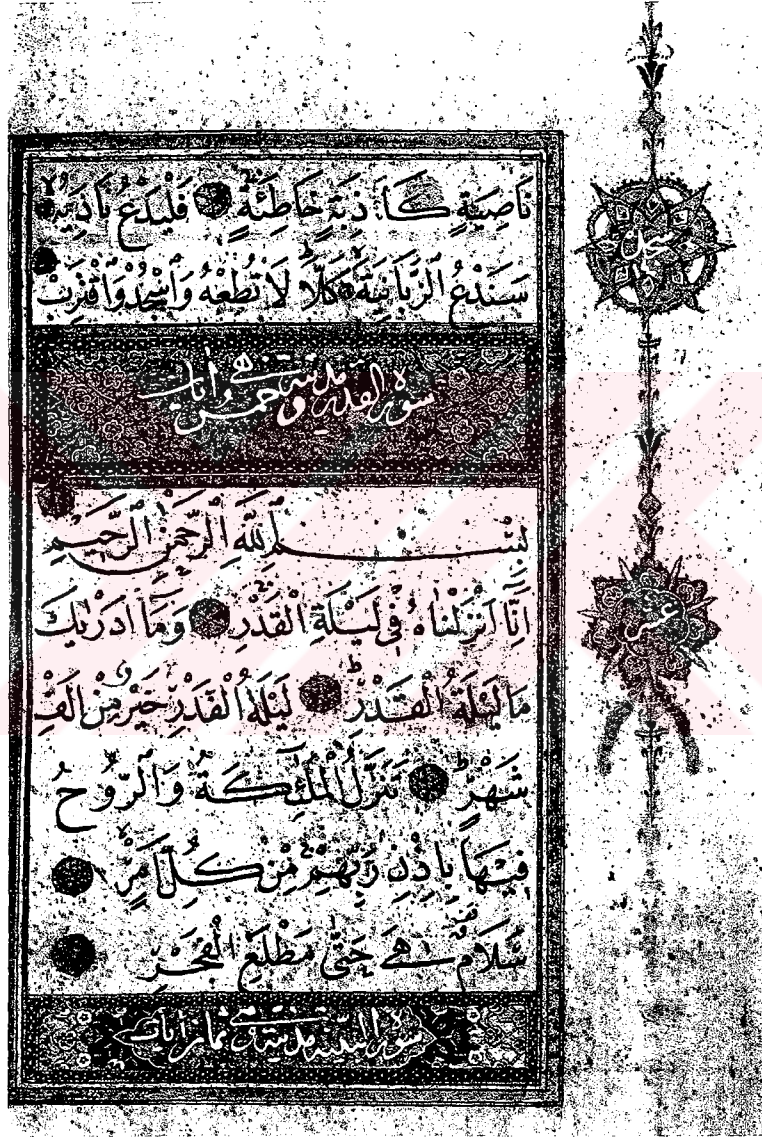 نَاصِيَةٍ كَاذِبَةٍ خَاطِئَةٍ فَلْيَدْعُ نَادِيَهُ
سَنَدْعُ الزَّبَانِيَةَ كَلَّا لَا تُطِعْهُ وَاسْجُدْ وَاقْتَرِبْ
سجدة
سورة القدر مدنية وهي خمس آيات
بِسْمِ اللَّهِ الرَّحْمٰنِ الرَّحِيمِ
اِنَّا اَنْزَلْنَاهُ فِي لَيْلَةِ الْقَدْرِ وَمَا اَدْرٰيكَ
عشر
مَا لَيْلَةُ الْقَدْرِ لَيْلَةُ الْقَدْرِ خَيْرٌ مِنْ اَلْفِ
شَهْرٍ تَنَزَّلُ الْمَلٰٓئِكَةُ وَالرُّوحُ
فِيهَا بِاِذْنِ رَبِّهِمْ مِنْ كُلِّ اَمْرٍ
سَلَامٌ هِيَ حَتّٰى مَطْلَعِ الْفَجْرِ
سورة البينة مدنية وهي ثمان آيات